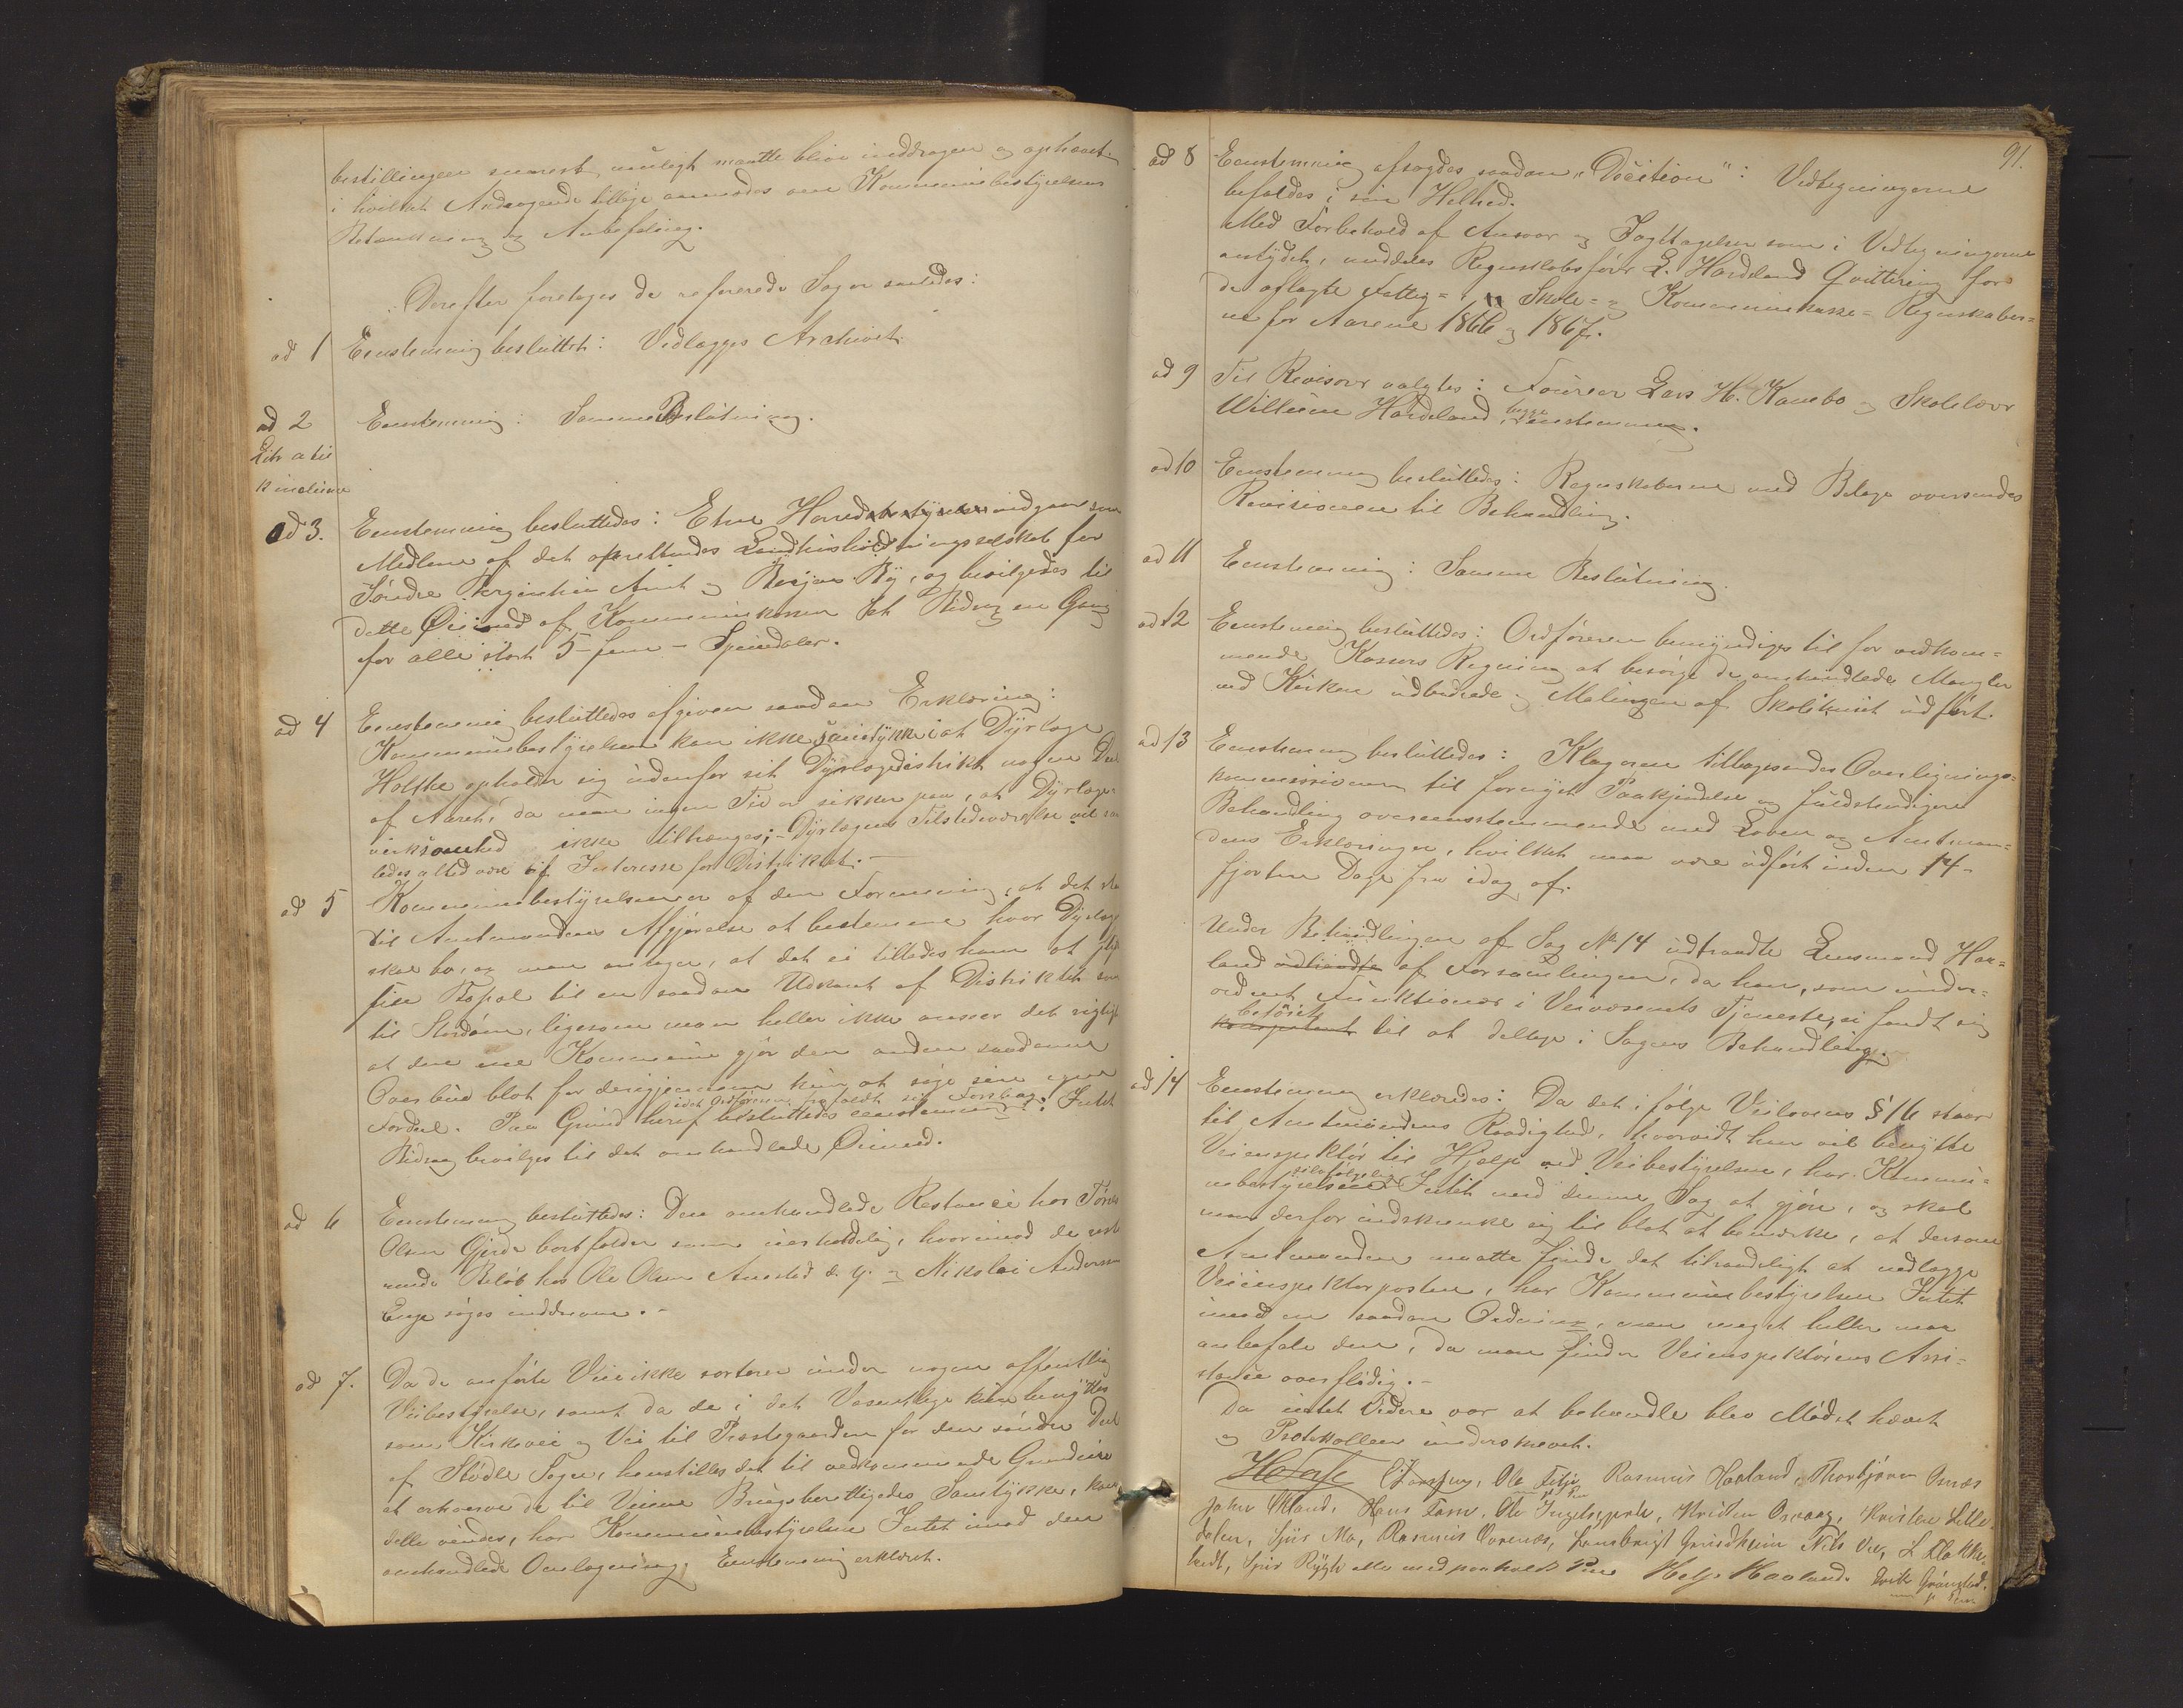 bestillingen snarest muligt maatte blive inddragen og ophævet
i hvilket Andragende tillige anmodes om Kommunebestyrelsens
Betænkning og Anbefaling.
Derefter foretoges de refererede Sager saaledes:
ad 1 Eenstemmig besluttet: Vedlægges Archivet.
ad 2 Eenstemmig: Samme Beslutning.
Litr a til
k inclusive
ad 3. Eenstemmig besluttedes: Etne Herredsbestyrelse indgaar som
Medlem af det oprettendes Landhusholdningsselskab for
Søndre Bergenhus Amt og Bergens By, og bevilgedes til
dette Øiemed af Kommunekassen et Bidrag en Gang
for alle stort 5 - fem - Speciedaler.
ad 4 Eenstemmig besluttedes afgiven saadan Erklæring:
Kommunebestyrelsen kan ikke samtykke i at Dyrlæge
Holtke opholder sig udenfor sit Dyrlægedistrikt nogen Deel
af Aaret, da man ingen Tid er sikker paa, at Dyrlæge-
virksomhed ikke tiltrænges; - Dyrlægens Tilstedeværelse vil saa-
ledes altid være af Interesse for Distriktet. -
ad 5 Kommunebestyrelsen er af den Formening, at det staar
til Amtmandens Afgjørelse at bestemme hvor Dyrlægen
skal bo, og man antager, at det ei tillades ham at flytte
sin Bopæl til en saadan Udkant af Distriktet som
til Stordøen, ligesom man heller ikke anseer det rigtigt
at den ene Kommune gjør den anden saadanne
Overbud blot for derigjennem kun at søge sin egen
Fordeel. Paa Grund heraf besluttedes eenstemmig: Intet
idet Ordføreren frafaldt sit Forslag
Bidrag bevilges til det omhandlede Øiemed.
ad 6 Eenstemmig besluttedes: Den omhandlede Restance hos Tørres
Olsen Gjerde bortfalder som uerholdelig, hvorimod de reste-
rende Beløb hos Ole Olsen Anestad d. y. og Nikolai Andersen
Enge søges inddrevne. -
ad 7. Da de anførte Veie ikke sorterer under nogen offentlig
Veibestyrelse, samt da de i det Væsentlige kun benyttes
som Kirkevei og Vei til Præstegaarden for den søndre Deel
af Stødle Sogn, henstilles det til vedkommende Grundeiere
at erhverve de til Veiene Brugsberettigedes Samtykke, kan
dette vindes, har Kommunebestyrelsen Intet imod den
omhandlede Omlægning, Eenstemmig erklæret.
91.
ad 8 Eenstemmig afsagdes saadan "Decition": Vedtegningerne
befaldes i sin Helhed.
Med Forbehold af Ansvar og Iagttagelser som i Vedtegningerne
antydet, meddeles Regnskabsfører L. Hardeland Qvittering for
de aflagte Fattig-, Skole- og Kommunekasse-Regnskaber-
ne for Aarene 1866 og 1867.
ad 9 Til Revisorer valgtes: Fourer Lars H. Kambo og Skolelærer
Willum Hardeland, begge eenstemmig.
ad 10 Eenstemmig besluttedes: Regnskaberne med Bilage oversendes
Revisionen til Behandling.
ad 11 Eenstemmig: Samme Beslutning.
ad 12 Eenstemmig besluttedes: Ordføreren bemyndiges til for vedkom-
mende Kassers Regning at besørge de omhandlede Mangler
ved Kirken udbedrede og Malingen af Skolehuset udført.
ad 13 Eenstemmig besluttedes: Klagerne tilbagesendes Overlignings-
kommissionen til fornyet Paakjendelse og fuldstændigere
Behandling overeensstemmende med Loven og Amtman-
dens Erklæringer, hvilket maa være udført inden 14-
fjorten Dage fra idag af.
Under Behandlingen af Sag No 14 udtraadte Lensmand Haa-
land udtraadte af Forsamlingen, da han, som under-
ordnet Funktionær i Veivæsenets Tjeneste, ei fandt sig
beføiet
kompetent til at deltage i Sagens Behandling.
ad 14 Eenstemmig erklæredes: Da det ifølge Veilovens § 16 staar
til Amtmandens Raadighed, hvorvidt han vil benytte
Veiinspektør til Hjælp ved Veibestyrelsen, har Kommu-
nebestyrelsen selvfølgelig Intet med denne Sag at gjøre, og skal
man derfor indskrænke sig til blot at bemærke, at dersom
Amtmanden maatte finde det tilraadeligt at nedlægge
Veiinspektørposten, har Kommunebestyrelsen Intet
imod en saadan Ordning, men meget heller maa
anbefale den, da man finder Veiinspektørens Assi-
stance overflødig. -
Da intet Videre var at behandle blev Mødet hævet
og Protokollen underskrevet.
Ole Fitje Rasmus Haaland Thorbjørn Osnæs
m p Pen
Johan Økland, Hans Tesse, Ole Ingebrgt, Kristen Osvaag, Kristen Litle
dalen, Sjur Mo, Rasmus Oarenæs, Lambrigt Grindheim Nils Vee, L Flokke-
tvedt, Sjur Rygh alle med paaholdt Pen Helje Haaland. Erik Grønstad.
m p Pen